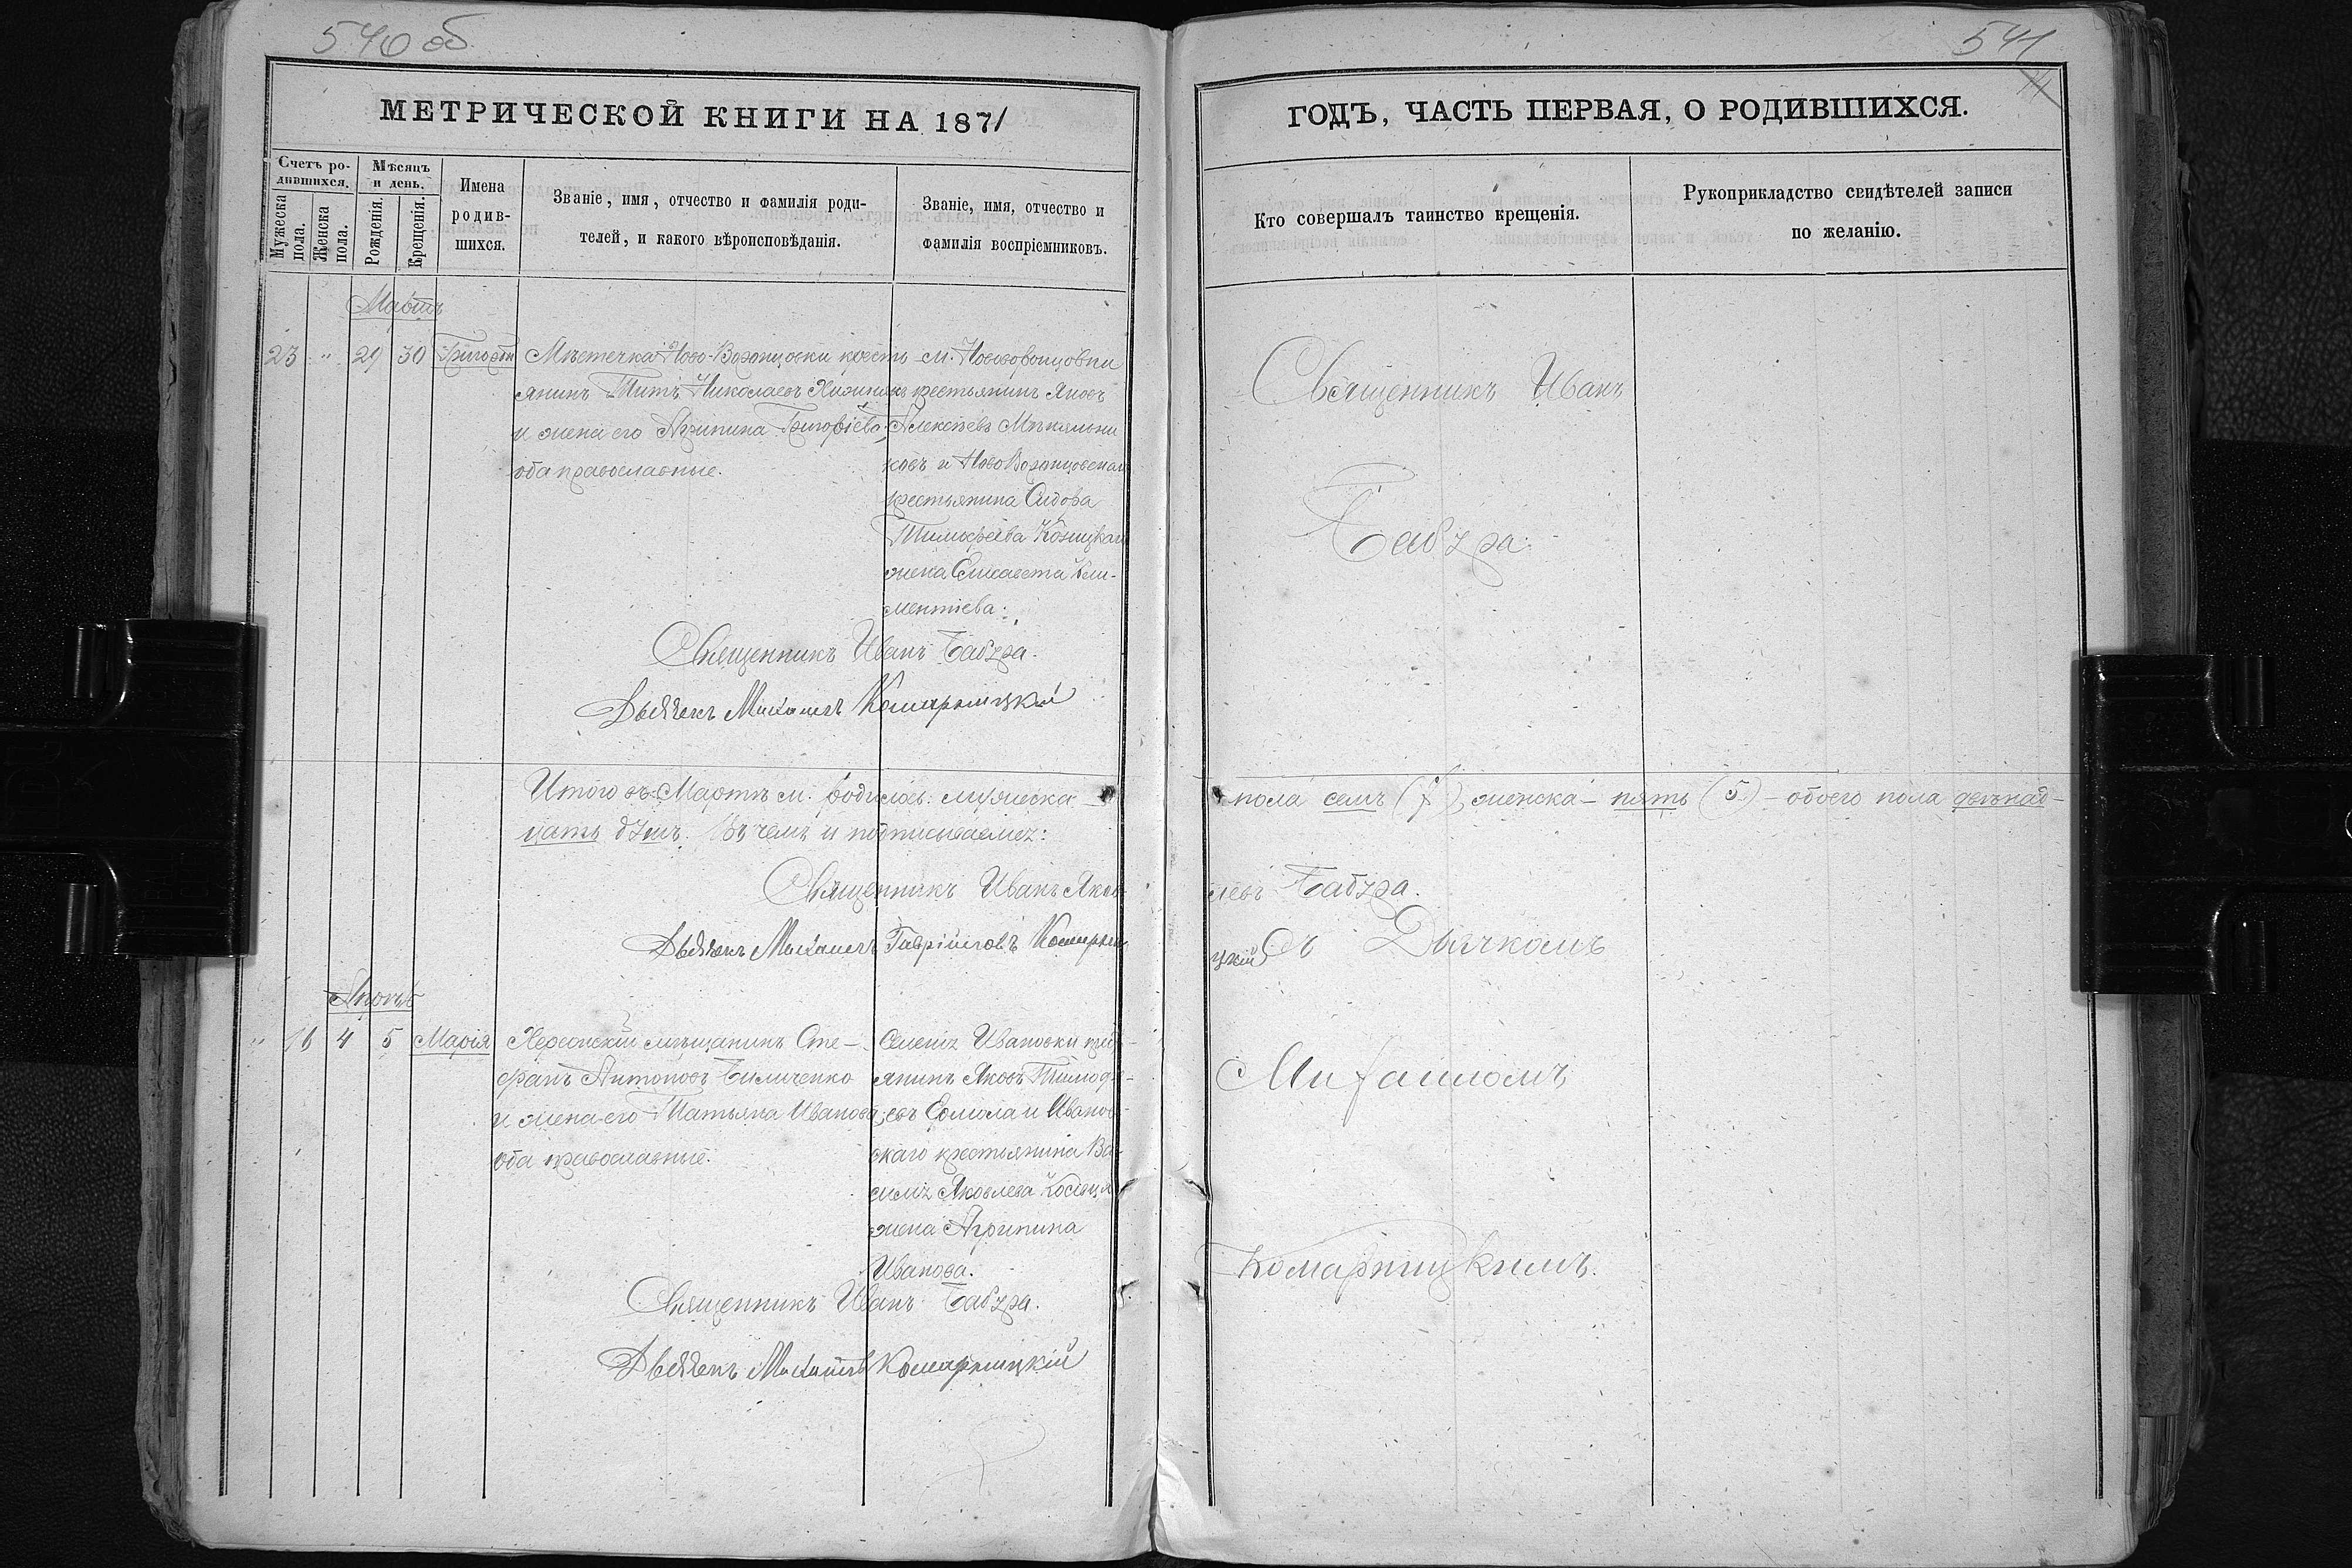 540 об
МЕТРИЧЕСКОЙ КНИГИ НА 1871
Счетъ ро-
дившихся.
Мужеска
пола.
Женска
пола.
Мѣсяцъ
и день.
Рожденія.
Крещенія.
Имена
родив-
шихся.
Званіе, имя, отчество и фамилія роди-
телей, и какого вѣроисповѣданія.
Званіе, имя, отчество и
фамилія воспріемниковъ.
Мартъ
23 " 29 30 Григорій
Мѣстечка Ново-Воронцовки кресть-
янинъ Титъ Николаевъ
и жена его Агрипина Григоріева,
оба православные.
м. Нововоронцовки
крестьянинъ Яковъ
Алексѣевъ
ковъ и НовоВоронцовскаго
крестьянина Сидора
Тимофеева
жена Елисавета Кли-
ментіева.
Священникъ Иванъ Бабура.
Дьячекъ Михаилъ Комарницкій
Итого въ Мартѣ м. родилось: мужеска
цать душъ. Въ чемъ и подписываемся:
Священникъ Иванъ Яков
Дьячекъ Михаилъ Гавріиловъ Комарни
Апрѣль
" 16 4 5 Марія
Херсонскій мѣщанинъ Сте-
фанъ Антоновъ Биличенко
и жена его Татьяна Иванова,
оба православные.
Селенія Ивановки крест-
янинъ Яковъ Тимофе-
евъ и Иванов-
скаго крестьянина Ва-
силія Яковлева
жена Агрипина
Иванова.
Священникъ Иванъ Бабура.
Дьячекъ Михаилъ Комарницкій
541
ГОДЪ, ЧАСТЬ ПЕРВАЯ, О РОДИВШИХСЯ.
Кто совершалъ таинство крещенія.
Рукоприкладство свидѣтелей записи
по желанію.
Священникъ Иванъ
Бабура
пола семь (7), женска – пять (5) – обоего пола двѣнад-
левъ Бабура.
цкій
Съ Дьячкомъ
Михаиломъ
Комарницкимъ.